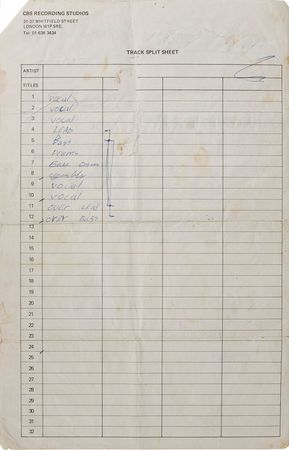 CBS RECORDING STUDIOS
20-22 WHITFIELD STREET
LONDON W1P 5RE.
Tel: 01-636 3434
TRACK SPLIT SHEET
ARTIST
TITLES
1 vocal
2 vocal
3 vocal
4 LEAD
5 Bass
6 Drums
7 Base Drum
8
9 vocal
10 vocal
11 OVER LEAD
12 OVER BASS
13
14
15
16
17
18
19
20
21
22
23
24
25
26
27
28
29
30
31
32